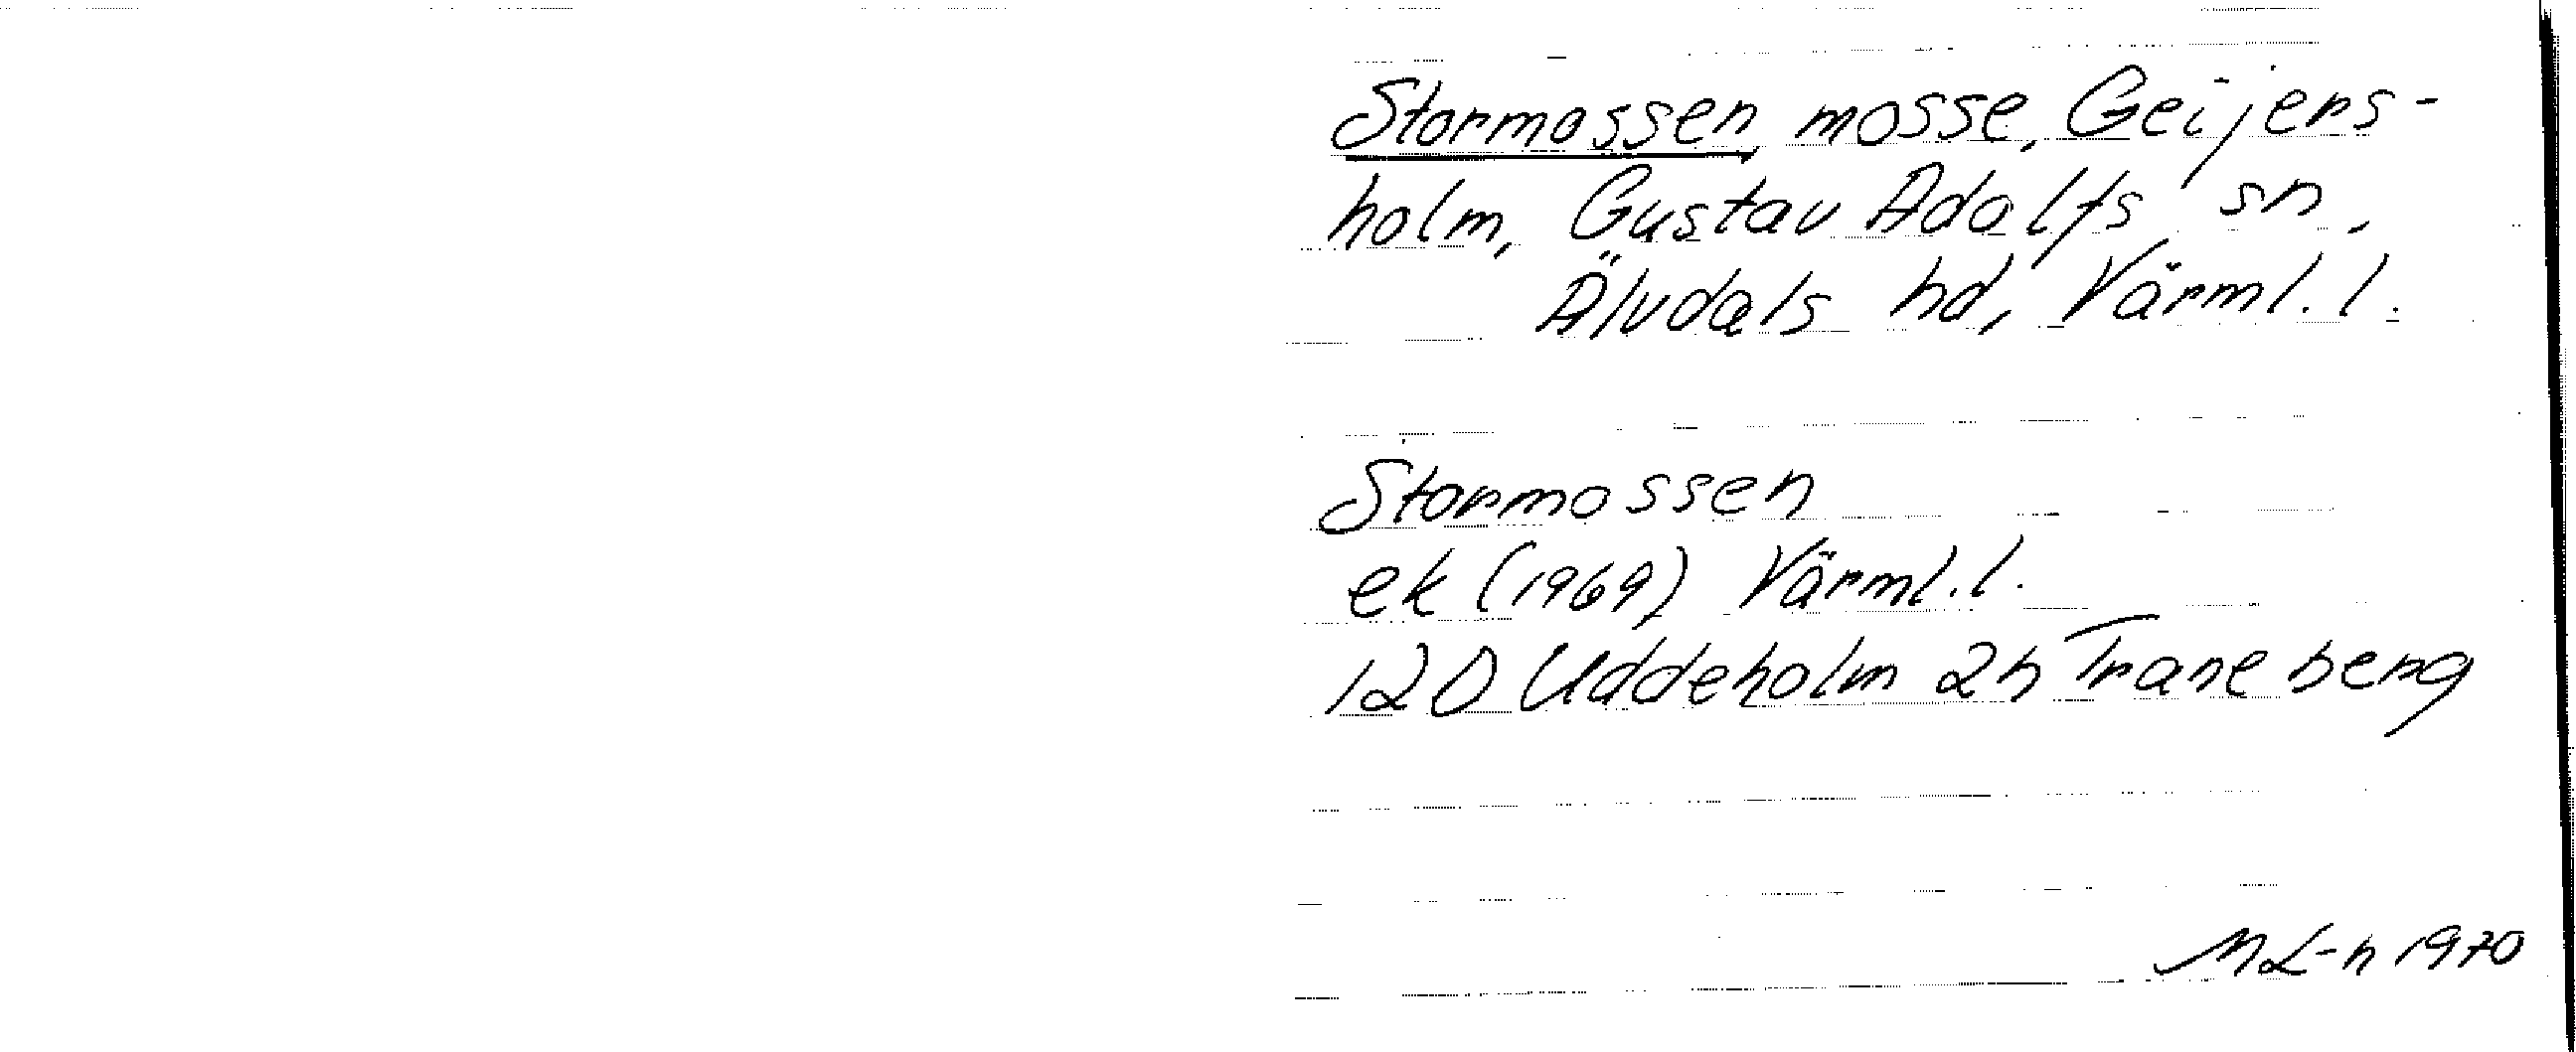 Stormossen, mosse, Geijers-
holm, Gustav Adolfs sn,
Älvdals hd, Värml. l.
Stormossen
ek (1969) Värml. l.
12D Uddeholm 2h Traneberg
ML-n 1970